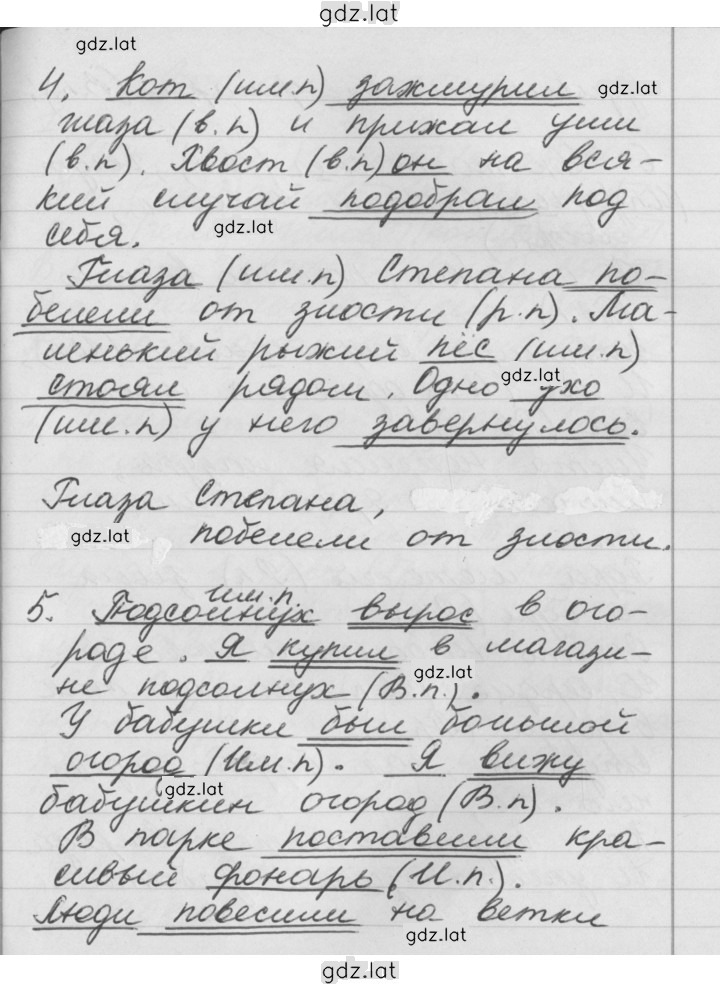 gdz.lat
gdz.lat
4. Кот (им.п) зажмурил gdz.lat
глаза (в.п) и прижал уши
(в.п). Хвост (в.п) он на вся-
кий случай подобрал под
себя. gdz.lat
Глаза (им.п) Степана по-
белели от злости (р.п). Ма-
ленький рыжий пёс (им.п)
стоял рядом. Одно ухо gdz.lat
(им.п) у него завернулось.
Глаза Степана,
gdz.lat побелели от злости.
им.п.
5. Подсолнух вырос в ого-
роде. Я купил в магази-
не подсолнух (В.п.). gdz.lat
У бабушки был большой
огород (Им.п). Я вижу
gdz.lat
бабушкин огород (В.п).
В парке поставили кра-
сивый фонарь (И.п.).
Люди повесили на ветки
gdz.lat
gdz.lat